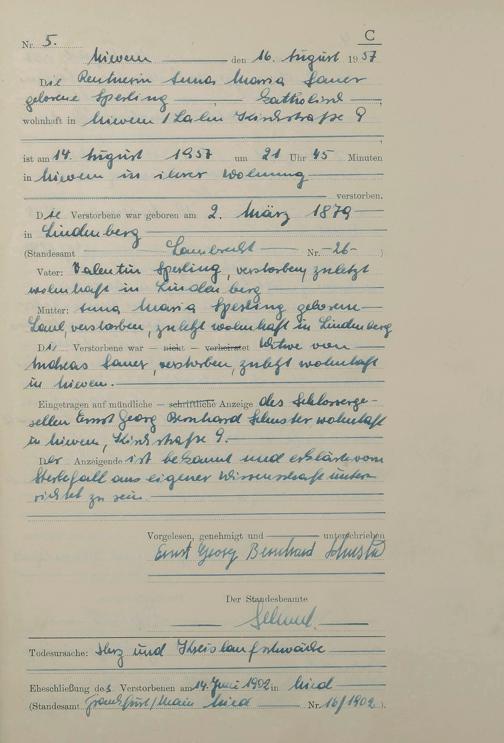 C
Nr. 5.
Nievern den 16. August 1957
Die Rentnerin Anna Maria Sauer
geborene Sperling — Katholisch —,
wohnhaft in Nievern / Lahn Kirchstraße 9
ist am 14. August 1957 um 21 Uhr 45 Minuten
in Nievern in ihrer Wohnung
verstorben.
Die Verstorbene war geboren am 2. März 1879
in Lindenberg
(Standesamt Lambrecht Nr. -26- )
Vater: Valentin Sperling, verstorben, zuletzt
wohnhaft in Lindenberg
Mutter: Anna Maria Sperling geborene
verstorben, zuletzt wohnhaft in Lindenberg
Die Verstorbene war — nicht — verheiratet Witwe von
Andreas Sauer, verstorben, zuletzt wohnhaft
in Nievern.
Eingetragen auf mündliche — schriftliche Anzeige des Schlosserge-
sellen Ernst Georg Bernhard Schuster wohnhaft
in Nievern, Kirchstraße 9.
Der Anzeigende ist bekannt und erklärte vom
Sterbefall aus eigener Wissenschaft unter-
richtet zu sein.
Vorgelesen, genehmigt und unterschrieben
Ernst Georg Bernhard Schuster
Der Standesbeamte
Todesursache: Herz und Kreislaufschwäche
Eheschließung des Verstorbenen am 14. Juni 1902 in Nied
(Standesamt Frankfurt/Main Nied Nr. 16/1902).